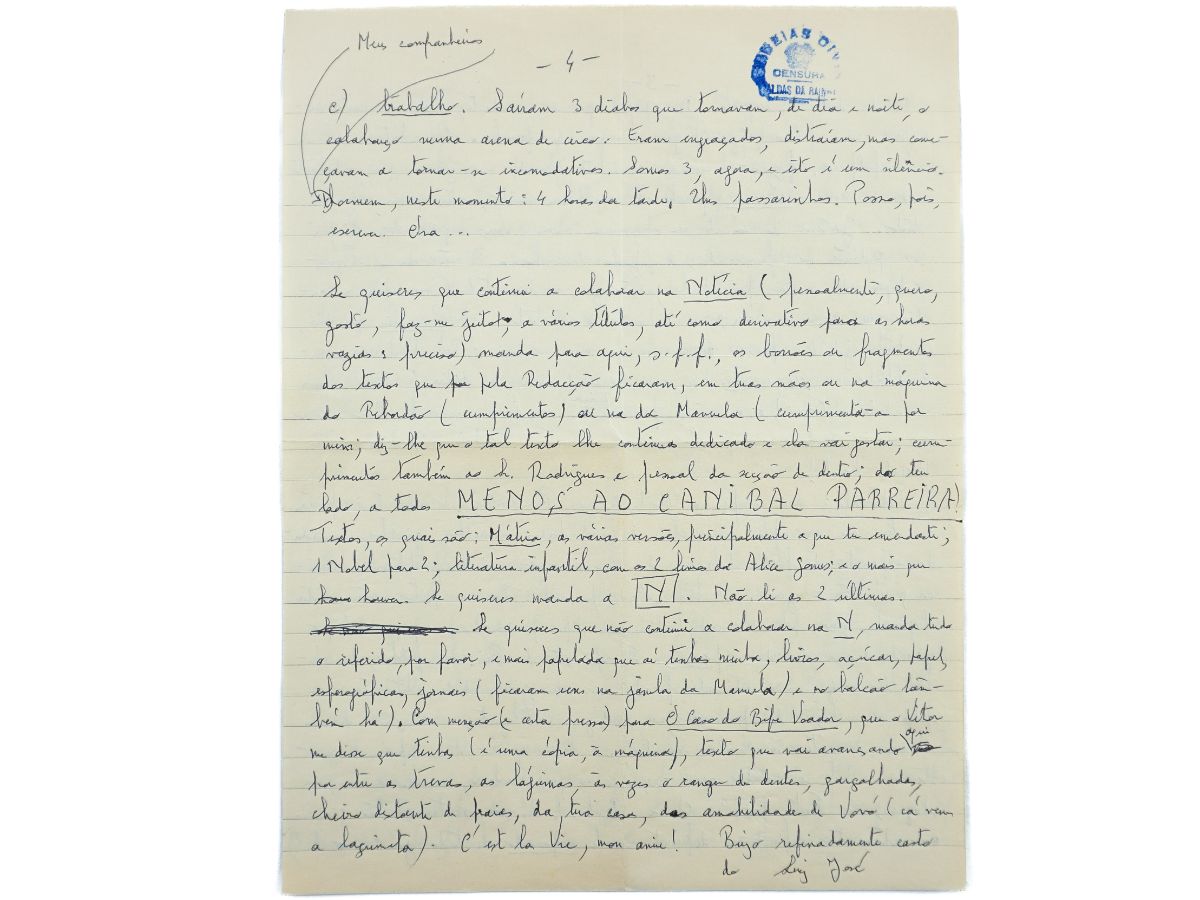 Meus companheiros
- 4 -
CADEIAS CIV
CENSURA
CALDAS DA RAINHA
c) trabalho. Saíram 3 diabos que tornavam, de dia e noite, o
calabouço numa arena de circo. Eram engraçados, distraíam, mas come-
çavam a tornar-se incomodativos. Somos 3, agora, e isto é um silêncio.
Dormem, neste momento: 4 horas da tarde, 2 passarinhos. Posso, pois,
escrever. Ora ...
Se quiseres que continui a colaborar na Notícia (pessoalmente, quero,
gosto, faz-me jeito, a vários títulos, até como derivativo para as horas
vazias: preciso) manda para aqui, s.f.f., os borrões ou fragmentos
dos textos que pela Redacção ficaram, em tuas mãos ou na máquina
do Rebordão (cumprimentos) ou na da Manuela (cumprimenta-a por
mim; diz-lhe que o tal texto lhe continua dedicado e ela vai gostar; cum-
primentos também ao Sr. Rodrigues e pessoal da secção de dentro; do teu
lado, a todos MENOS AO CANIBAL PARREIRA!
Textos, os quais são: Mátria, as várias versões, principalmente a que tu emendaste;
1 Nobel para 2; literatura infantil, com os 2 livros da Alice Gomes; e o mais que
houver. Se quiseres manda a N. Não li as 2 últimas.
Se quiseres que não continui a colaborar na N, manda tudo
o referido, por favor, e mais papelada que aí tenhas minha, livros, açúcar, papel,
esferográficas, jornais (ficaram uns na janela da Manuela) e no balcão tam-
bém há). Com menção (e certa pressa) para O Caso do Bife Voador, que o Vítor
me disse que tinhas (é uma cópia, à máquina), texto que vai avançando aqui
por entre as trevas, as lágrimas, às vezes o ranger de dentes, gargalhadas,
cheiro distante de praias, da tua casa, da amabilidade de Vovó (cá vem
a lagrimita). C'est la Vie, mon amie! Beijo refinadamente casto
do Luiz José